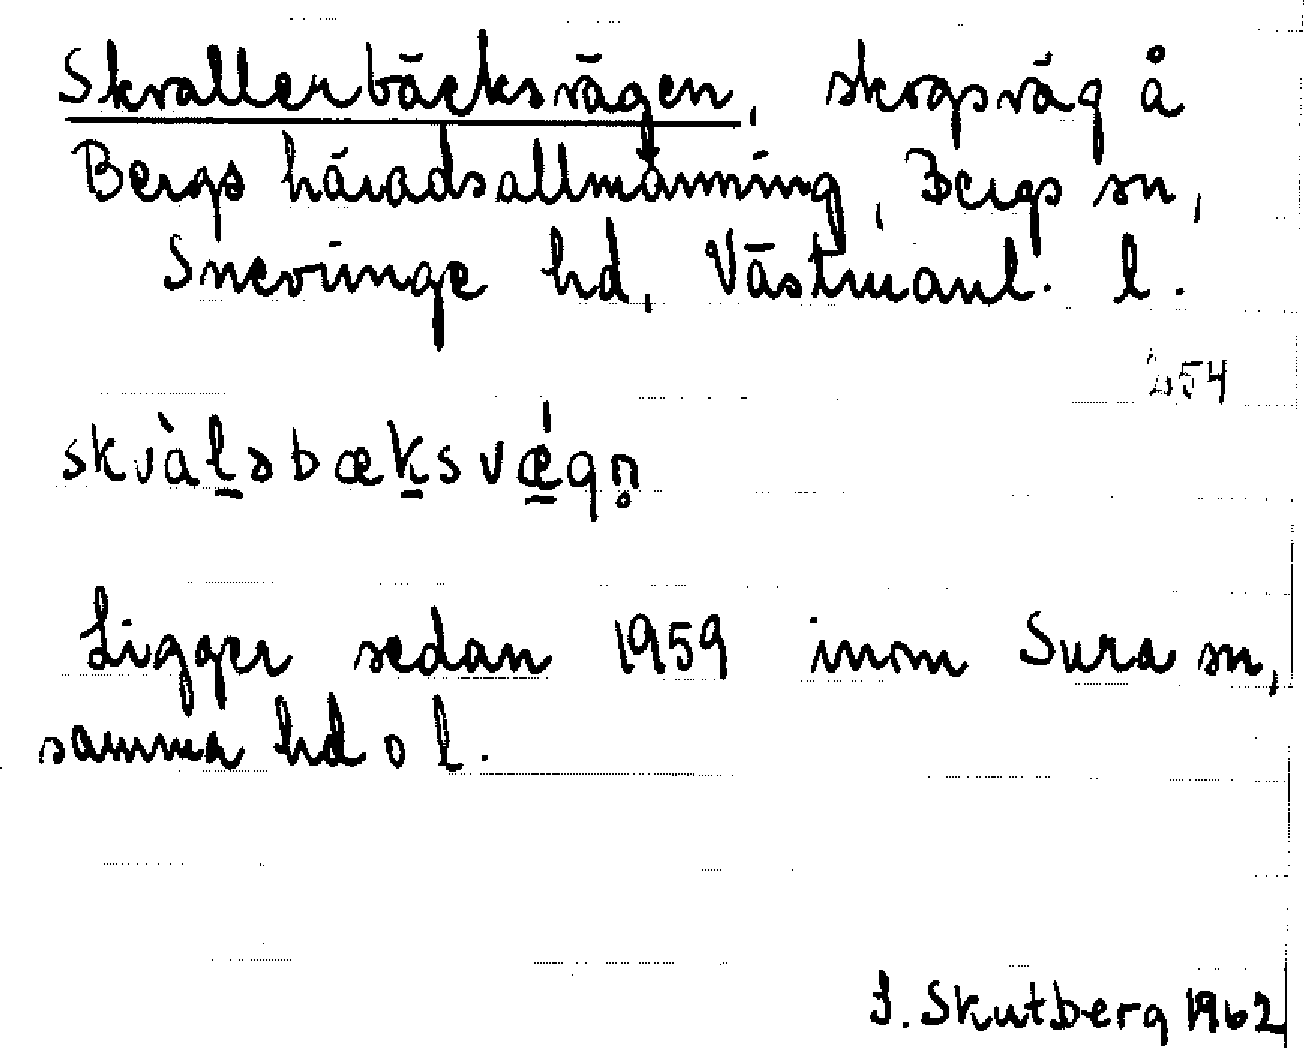 Skvallerbäcksvägen, skogsväg å
Bergs häradsallmänning, Bergs sn,
Snevringe hd, Västmanl. l.
254
skvàl̠əbæk̠svǽ̠gn̥
Ligger sedan 1959 inom Sura sn,
samma hd o l.
J. Skutberg 1962